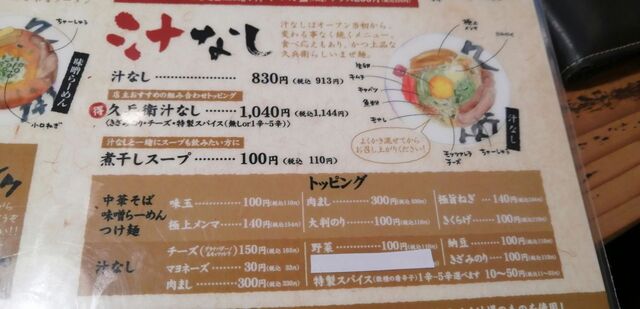 汁なし
汁なしはオープン当初から、
変わる事なく続くメニュー。
食べ応えもあり、かつ上品な
久兵衛らしいまぜ麺。
汁なし 830円(税込 913円)
店主おすすめの組み合わせトッピング
得 久兵衛汁なし 1,040円(税込1,144円)
(きざみのり・チーズ・特製スパイス(無しor1辛~5辛))
汁なしと一緒にスープも飲みたい方に
煮干しスープ 100円(税込 110円)
味噌らーめん
小口ねぎ
ちゃーしゅう
極上メンマ
キャベツ
魚粉
モヤシ
汁なし
ちゃーしゅう
モッツァレラチーズ
よくかき混ぜてから
お召し上がりください!
トッピング
中華そば
味噌らーめん
つけ麺
味玉 100円(税込110円)
肉まし 300円(税込330円)
極旨ねぎ 140円
極上メンマ 140円(税込154円)
大判のり 100円(税込110円)
きくらげ 100円
汁なし
チーズ 150円(税込165円)
野菜 100円(税込110円)
納豆 100円
マヨネーズ 30円(税込33円)
きざみのり 100円
肉まし 300円(税込330円)
特製スパイス 1辛~5辛選べます 10~50円